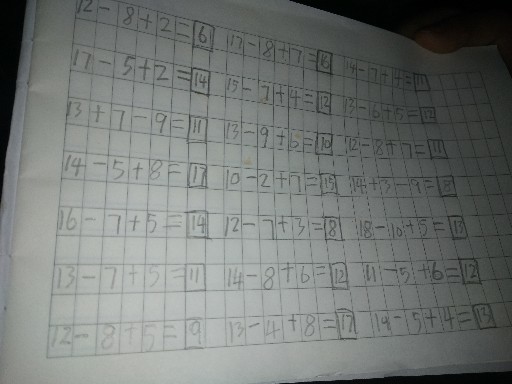 12-8+2=6 17-8+7=16 14-7+4=11
17-5+2=14 15-7+4=12 13-6+5=12
13+7-9=11 13-9+6=10 12-8+7=11
14-5+8=17 10-2+7=15 14+3-9=8
16-7+5=14 12-7+3=8 18-10+5=13
13-7+5=11 14-8+6=12 11-5+6=12
12-8+5=9 13-4+8=17 14-5+4=13